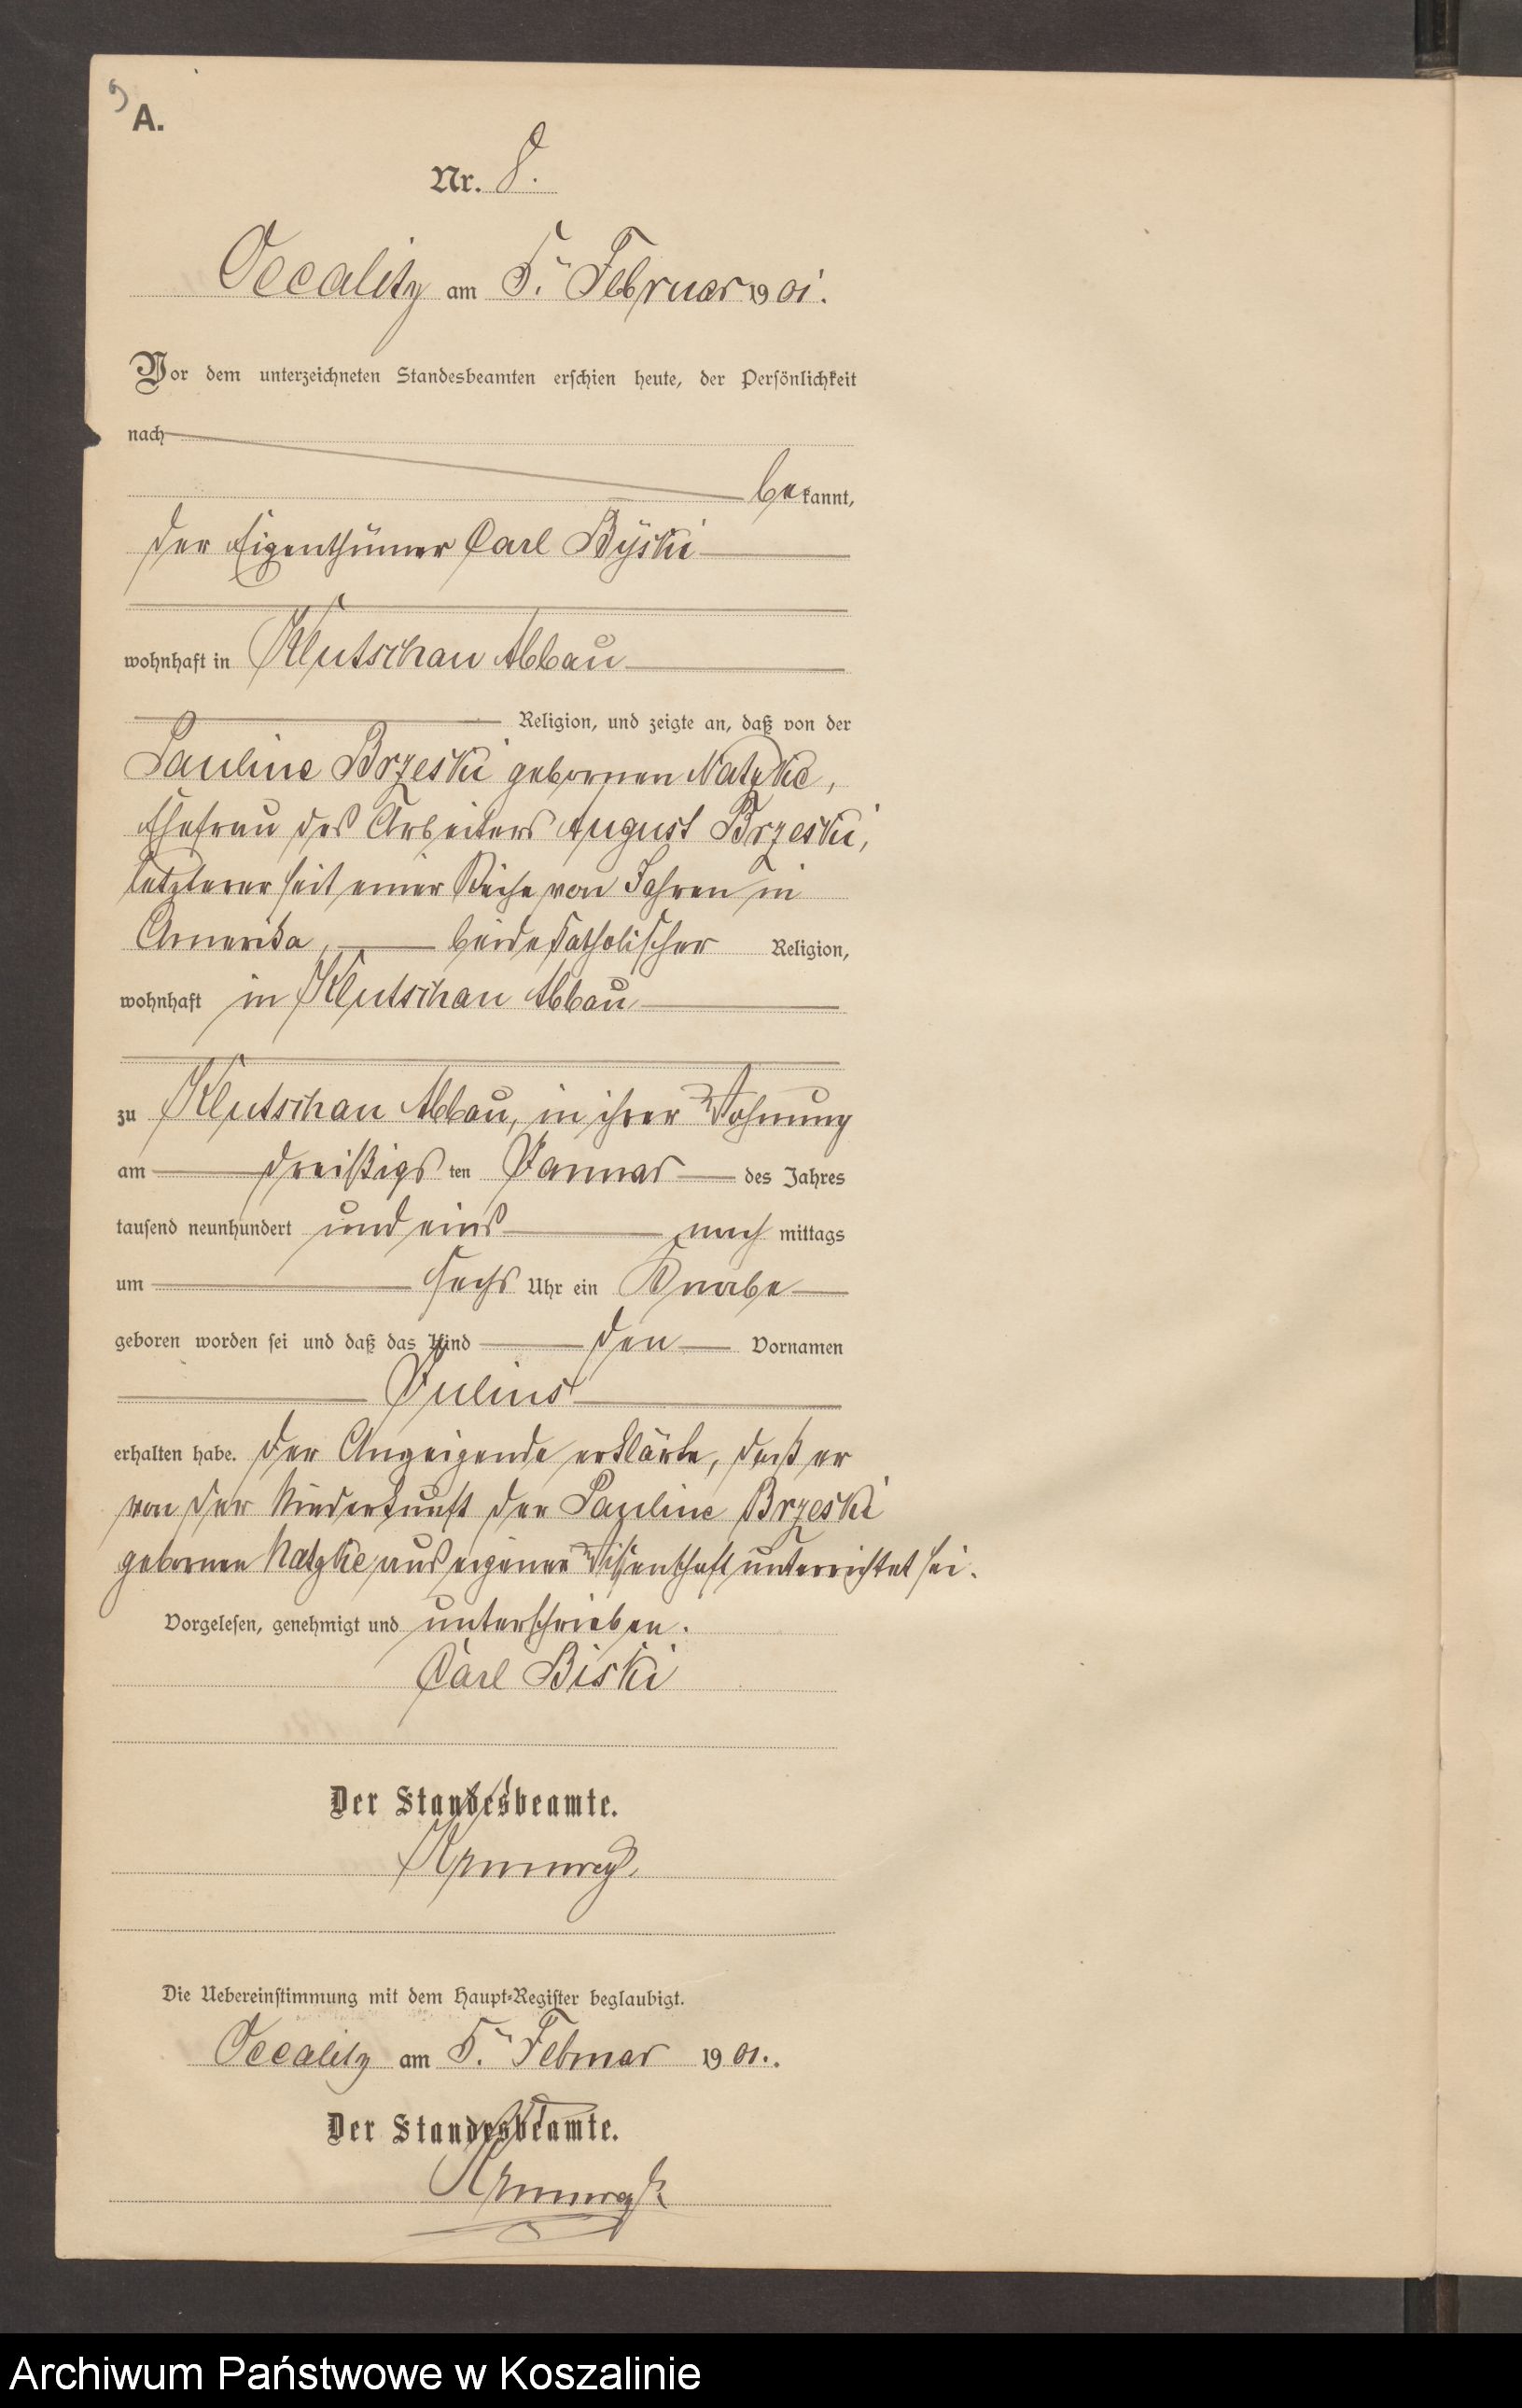 9
A.
Nr. 8.
Occalitz am 5. Februar 1901.
Vor dem unterzeichneten Standesbeamten erschien heute, der Persönlichkeit
nach
bekannt,
der Eigenthümer Carl Byski
wohnhaft in Klutschau Abbau
Religion, und zeigte an, daß von der
Pauline Brzeski gebornen Natzke,
Ehefrau des Arbeiters August Brzeski,
letzterer seit einer Reihe von Jahren in
Amerika, beide katholischer Religion,
wohnhaft in Klutschau Abbau
zu Klutschau Abbau, in ihrer Wohnung
am dreißigsten Januar des Jahres
tausend neunhundert und eins nachmittags
um sechs Uhr ein Knabe
geboren worden sei und daß das Kind den Vornamen
Julius
erhalten habe. Der Anzeigende erklärte, daß er
von der Niederkunft der Pauline Brzeski
gebornen Natzke aus eigener Wissenschaft unterrichtet sei.
Vorgelesen, genehmigt und unterschrieben.
Carl Biski
Der Standesbeamte.
Die Uebereinstimmung mit dem Haupt-Register beglaubigt.
Occalitz am 5. Februar 1901.
Der Standesbeamte.
Archiwum Państwowe w Koszalinie